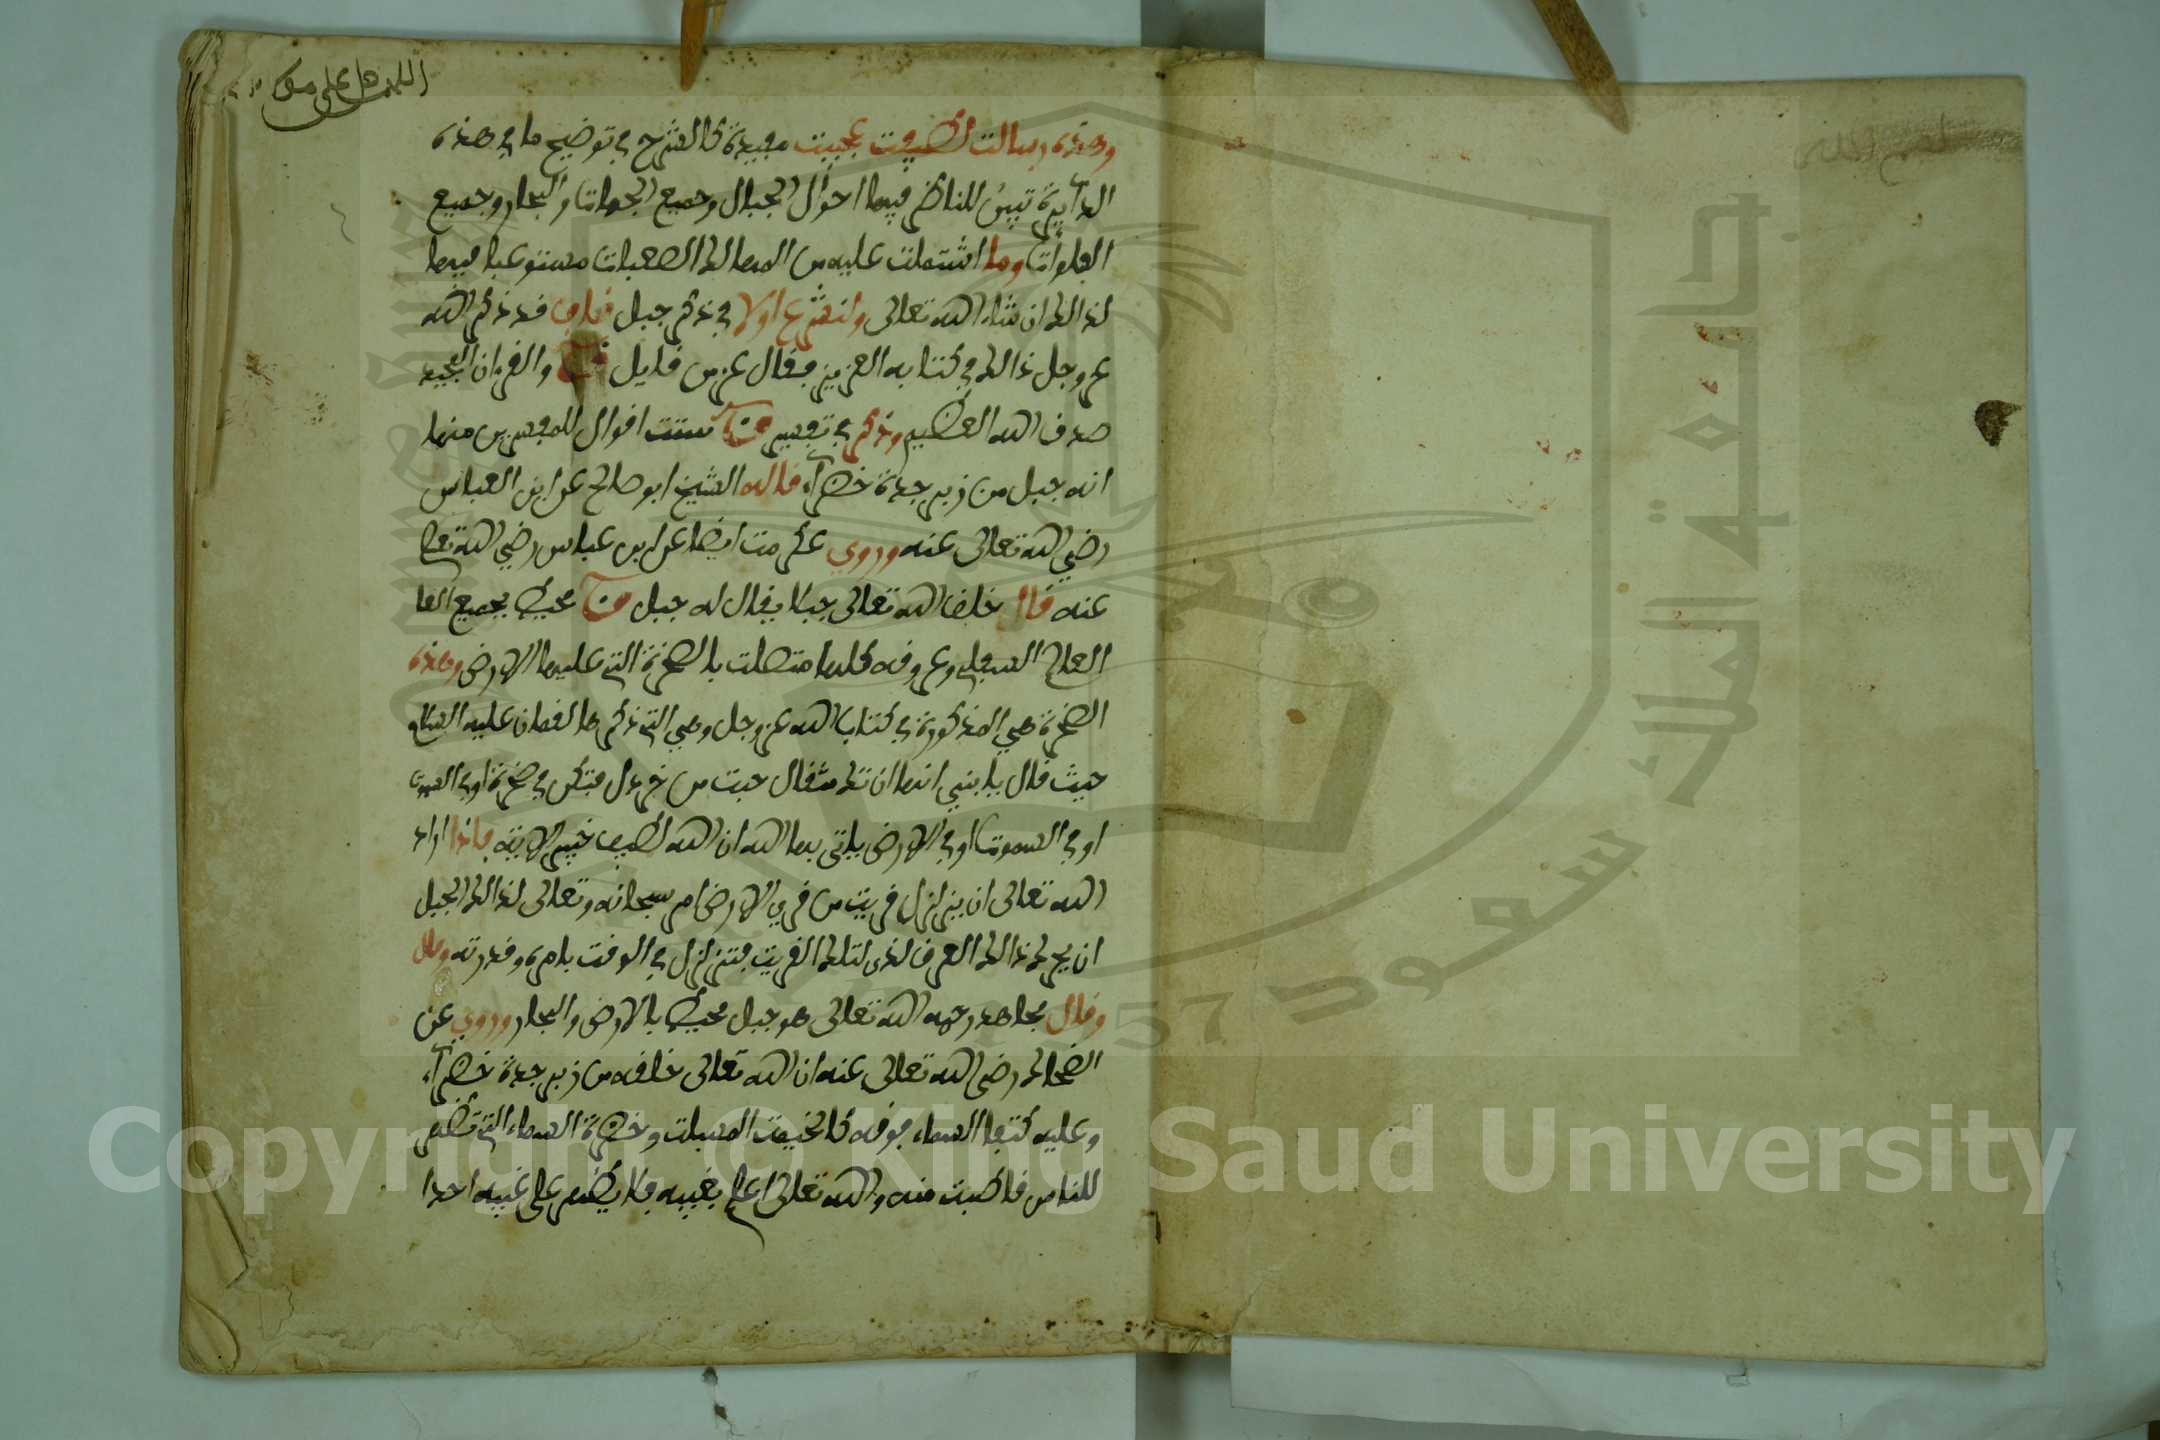 اللهم صل على
وهذه رسالت لطيفت عجيبت مفيدة كالشرح في توضيح ما في هذه
الدآيرة تبين للناظر فيها احوال الجبال وجميع الجهات والبحار وجميع
الفلوات وما اشتملت عليه من المهالك الصعبات مستوعبا فيها
لذالك ان شاء الله تعالى ولنشرع اولا في ذكر جبل قاف فقد ذكر الله
عز وجل ذالك في كتابه العزيز فقال عز من قايل ق والقرءان المجيد
صدق الله العظيم وذكر في تفسير ق ستت اقوال للمفسرين منها
انه جبل من زبرجدة خضرآء قاله الشيخ ابو صالح عن ابن العباس
رضي الله تعالى عنه وروي عكرمت ايضا عن ابن عباس رضي الله تعلى
عنه قال خلق الله تعالى جبلا يقال له جبل ق محيط بجميع العا
العالم السفلي وعروقه كلها متصلت بالصخرة التي عليها الارض وهذه
الصخرة هي المذكورة في كتاب الله عز وجل وهي التي ذكرها لقمان عليه السلام
حيث قال يا بني انها ان تك مثقال حبت من خردل فتكن في صخرة او في السموت
او في السموت او في الارض يات بها الله ان الله لطيف خبير الاية فاذا اراد
الله تعالى ان يزلزل قريت من قرى الارض امر سبحانه وتعالى لذالك الجبل
ان يحرك ذالك العرق لذى لتلك القريت فتتزلزل في الوقت بامره وقدرته وقال
وقال مجاهد رحمه الله تعالى هو جبل محيط بالارض والبحار وروي عن
الضحاك رضي الله تعالى عنه ان الله تعالى خلقه من زبرجدة خضرآء
وعليه كتفا السماء فوقه كالخيمت المسبلت وخضرة السماء التي تظهر
للناس قاطبت منه والله تعالى اعلم بغيبه فلا يظهر على غيبه احدا
جامعة الملك سعود
1957
Copyright © King Saud University